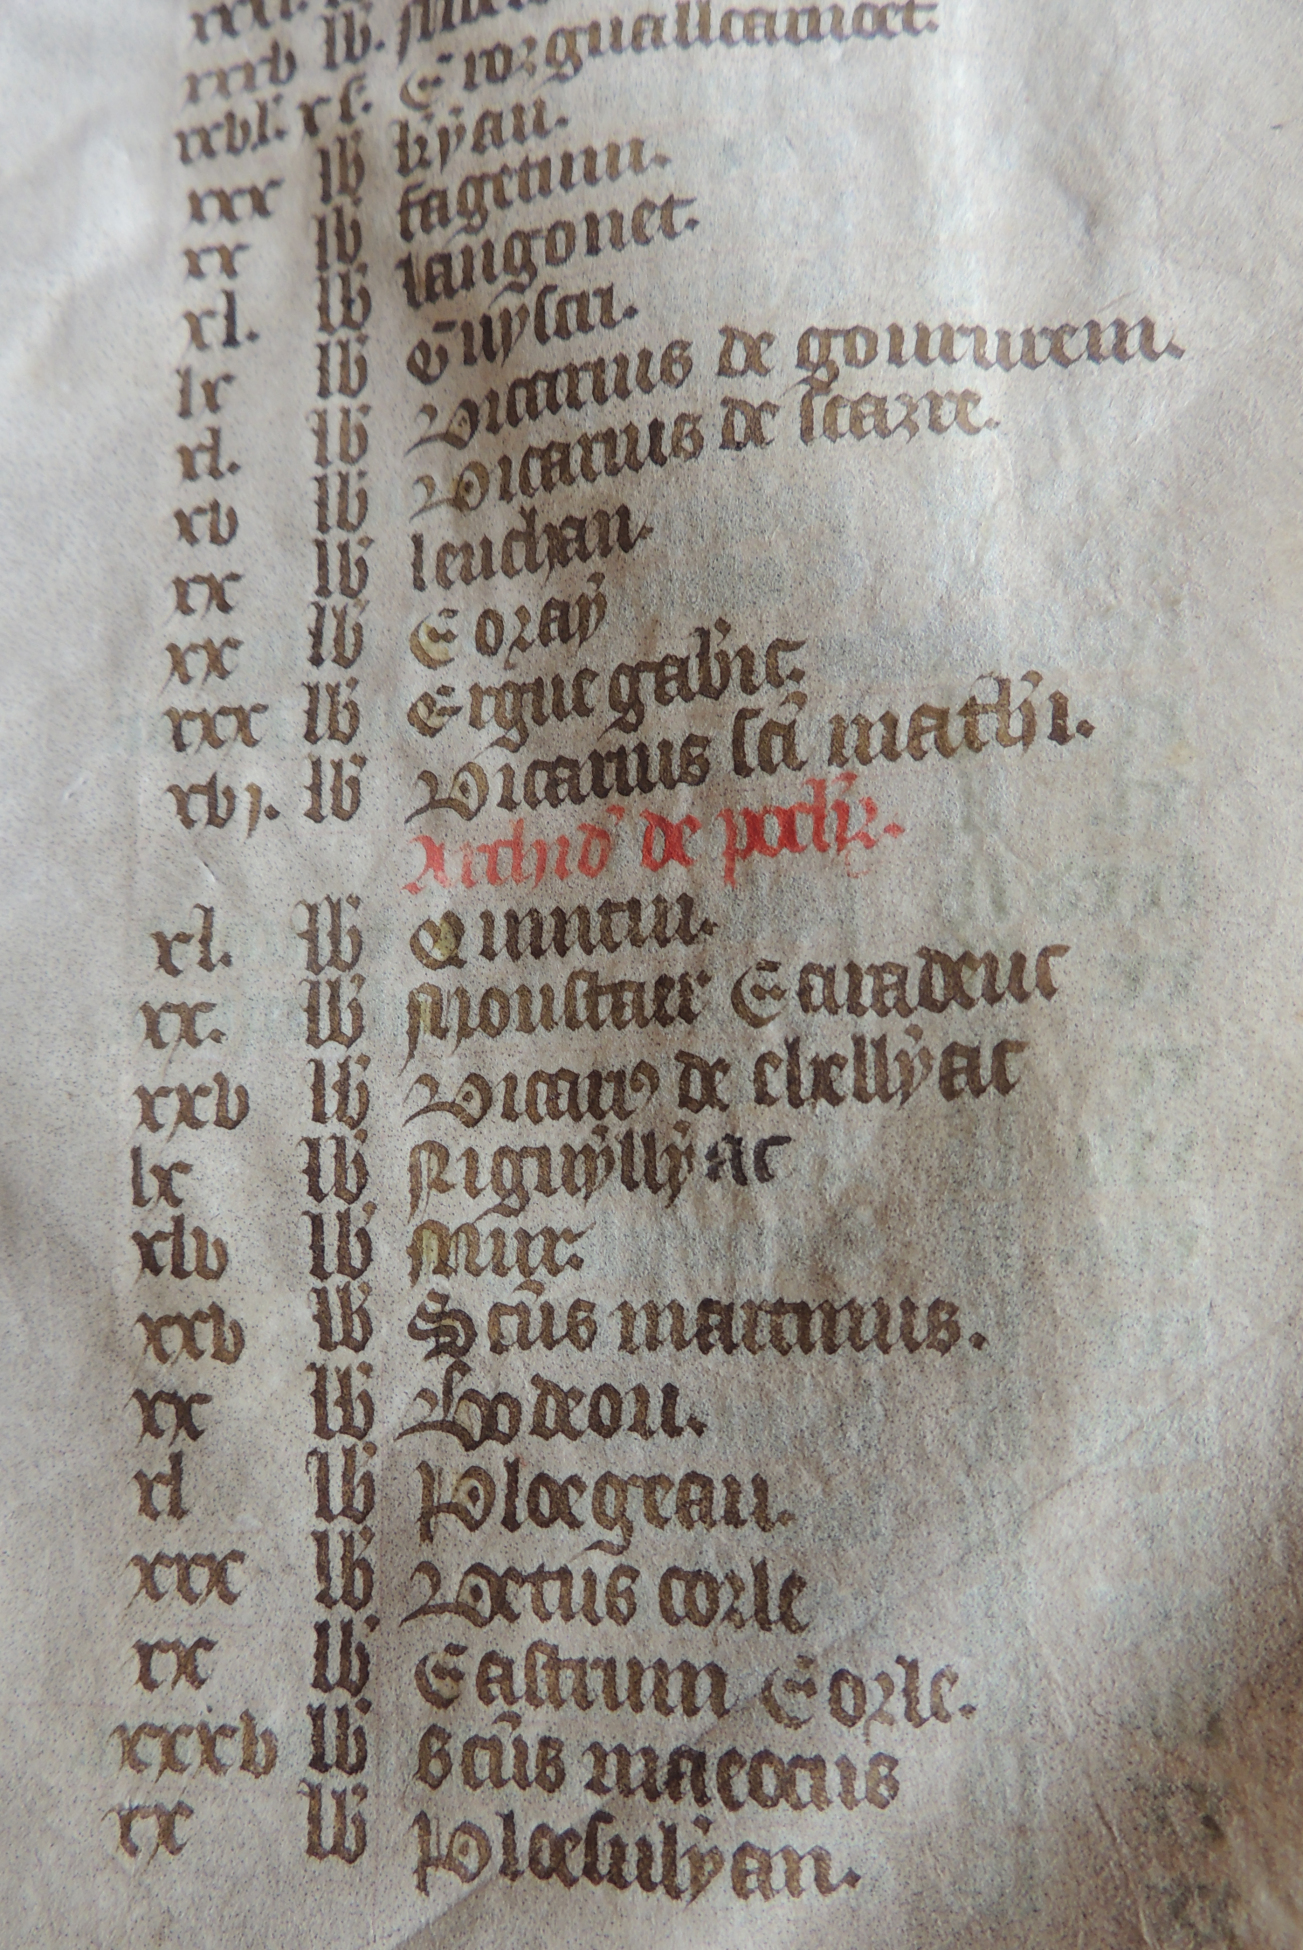 xxxv lb.
xxvj. x s. Trozguallcamoet.
xxx lb kyan.
xx lb fagetum.
xl. lb langonet.
lx lb Guyscri.
xl. lb Vicarius de goururem.
xv lb Vicarius de scazre.
xx lb leuchan.
xx lb Coray
xxx lb Ergue gabic.
xvj. lb Vicarius sci mathi.
Archid de pochr.
xl. lb Quintin.
xx. lb Moustaer Caradeuc
xxv lb Vicari9 de elhellyac
lx lb Niguyllyac
xlv lb Mur.
xxv lb Scus martinus.
xx lb Bodeou.
xl lb Ploegrau.
xxx lb Vetus corle
xx lb Castrum Corle.
xxxv lb Scus maeocus
xx lb Ploesulyan.